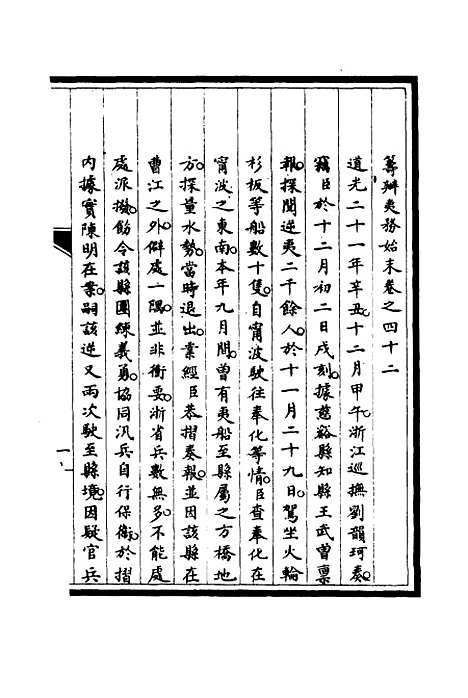 籌辦夷務始末卷之四十二
道光二十一年辛丑。十二月甲午。浙江巡撫劉韻珂奏。
竊臣於十二月初二日戌刻。據慈谿縣知縣王武曾稟
報。探聞逆夷二千餘人。於十一月二十九日。駕坐火輪
杉板等船數十隻。自甯波駛往奉化等情。臣查奉化在
甯波之東南。本年九月間。曾有夷船至縣屬之方橋地
方。探量水勢。當時退出。業經臣恭摺奏報。並因該縣在
曹江之外。僻處一隅。並非衝要。浙省兵數無多。不能處
處派撥。飭令該縣團練義勇。協同汛兵自行保衛。於摺
內據實陳明在案。嗣該逆又兩次駛至縣境。因疑官兵
一